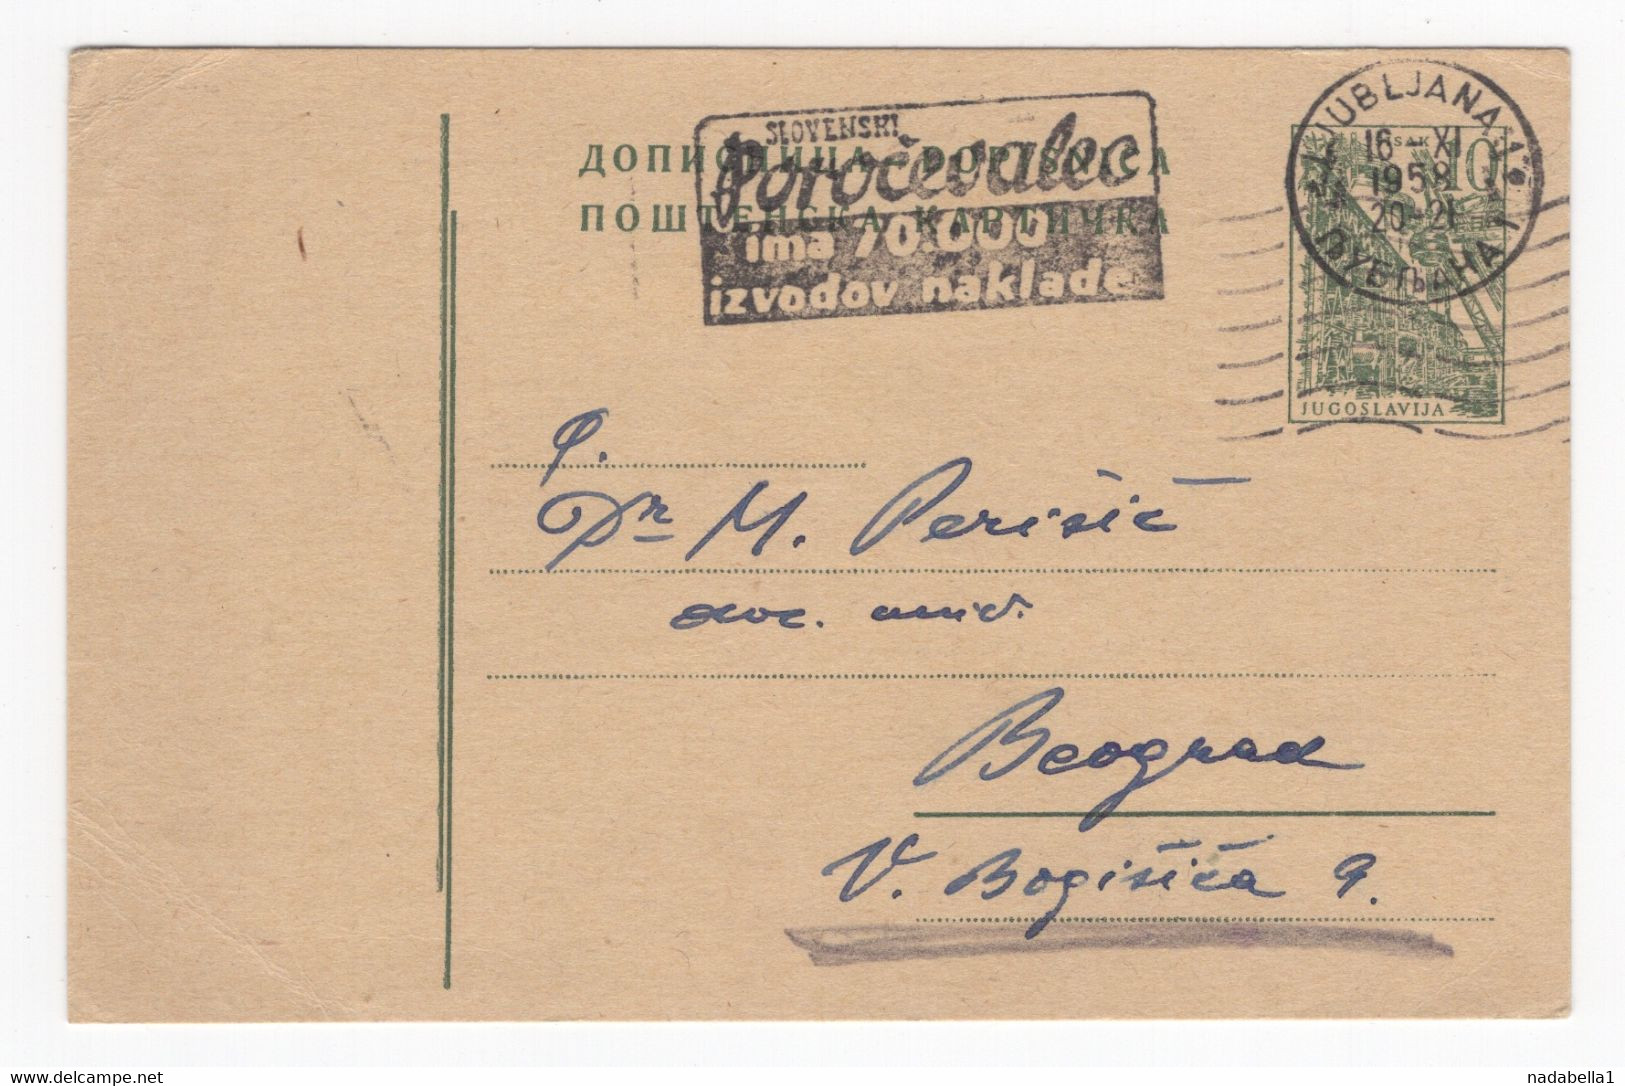 SLOVENSKI
Poročevalec
ima 70.000
izvodov naklade
ДОПИСНИЦА - DOPISNICA
ПОШТЕНСКА КАРТИЧКА
LJUBLJANA 1
16-XI
1958
20-21
ЉУБЉАНА 1
SISAK 10
JUGOSLAVIJA
Dr M. Perišić
doc. univ.
Beograd
V. Bogišića 9.
www.delcampe.net
nadabella1